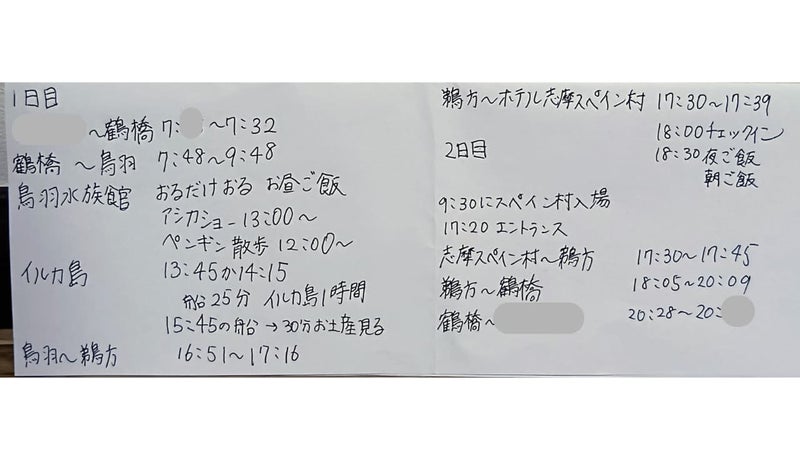 1日目
～鶴橋 7: ～7:32
鶴橋 ～鳥羽 7:48～9:48
鳥羽水族館 おるだけおる お昼ご飯
アシカショー 13:00～
ペンギン散歩 12:00～
イルカ島 13:45か14:15
船25分 イルカ島1時間
15:45の船→30分お土産見る
鳥羽～鵜方 16:51～17:16
鵜方～ホテル志摩スペイン村 17:30～17:39
18:00チェックイン
18:30夜ご飯
朝ご飯
2日目
9:30にスペイン村入場
17:20 エントランス
志摩スペイン村～鵜方 17:30～17:45
鵜方～鶴橋 18:05～20:09
鶴橋～ 20:28～20: